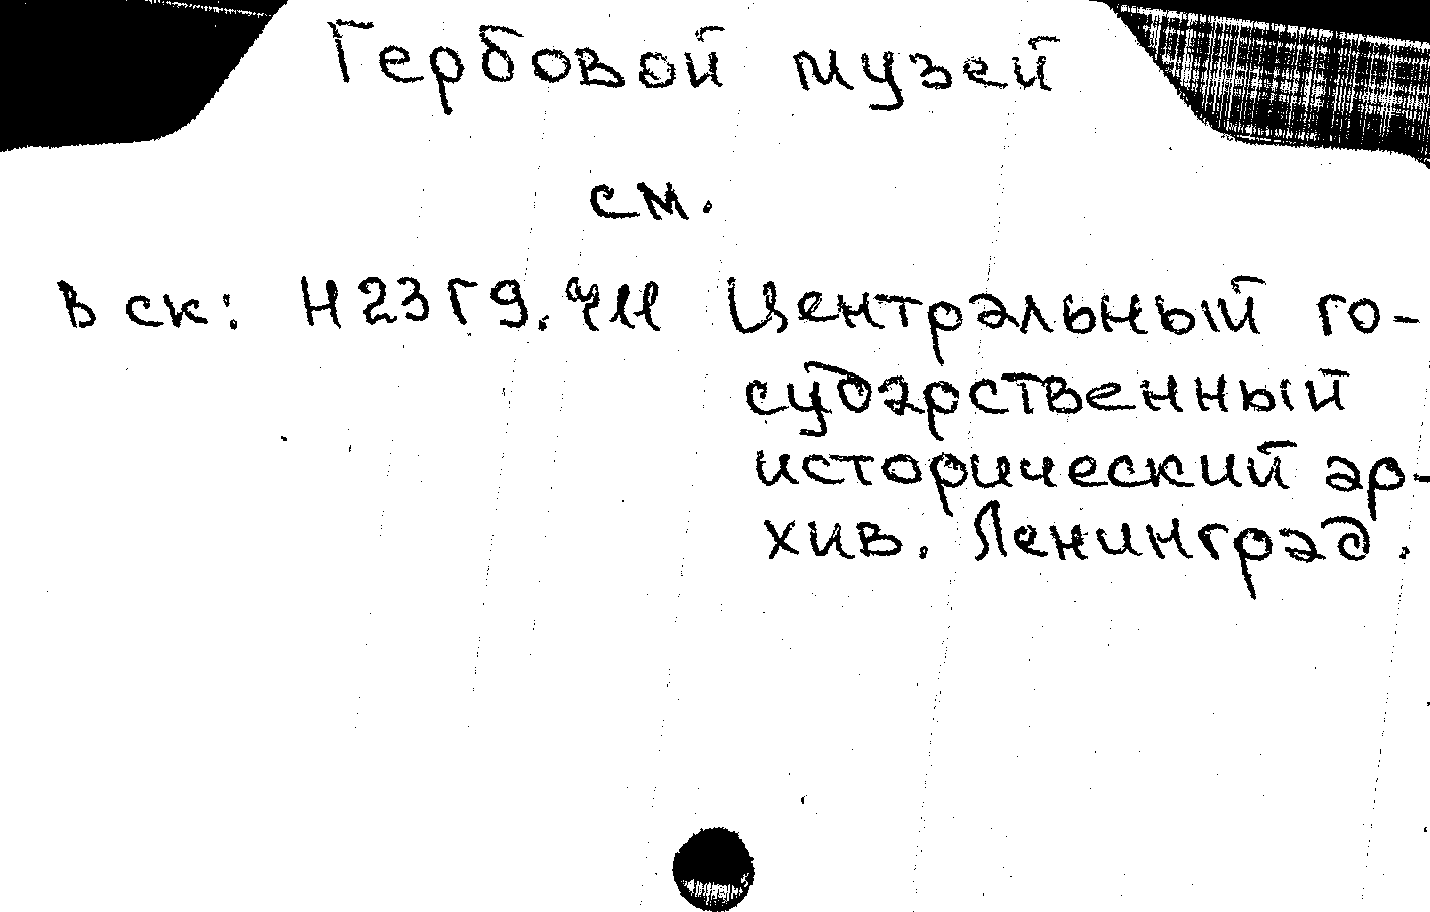 Гербовой музей
см.
в ск: Н23Г9. Центральный го-
сударственный
исторический ар-
хив. Ленинград.